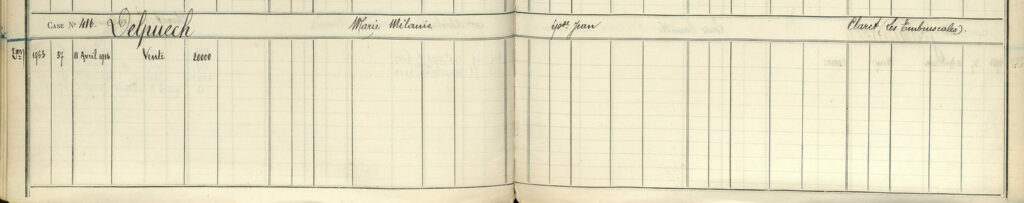 CASE N° 416. Delpuech Marie Mélanie épse Jean Claret (Les Embruscales).
1963 37 11 Avril 1916 Vente 20000